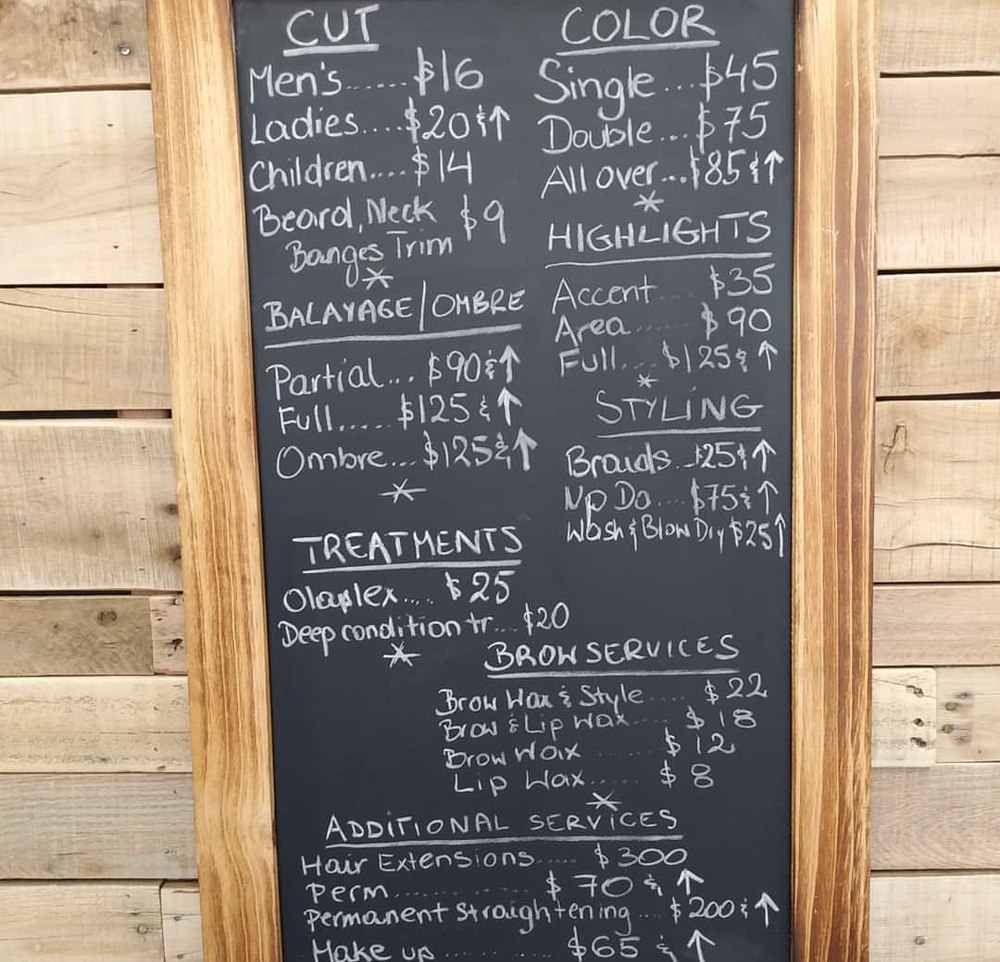 CUT
Men's...... $16
Ladies.... $20 & ↑
Children.... $14
Beard, Neck $9
Banges Trim
*
BALAYAGE/OMBRE
Partial... $90 & ↑
Full..... $125 & ↑
Ombre... $125 & ↑
*
TREATMENTS
Olaplex.... $25
Deep condition tr... $20
*
COLOR
Single... $45
Double... $75
All over... $85 & ↑
*
HIGHLIGHTS
Accent.... $35
Area...... $90
Full.... $125 & ↑
*
STYLING
Braids... $25 & ↑
Up Do.... $75 & ↑
Wash & Blow Dry $25 ↑
BROW SERVICES
Brow Wax & Style .... $22
Brow & Lip Wax .... $18
Brow Wax ...... $12
Lip Wax..... $8
*
ADDITIONAL SERVICES
Hair Extensions ..... $300
Perm............ $70 & ↑
Permanent Straightening ... $200 & ↑
Make up ........... $65 & ↑